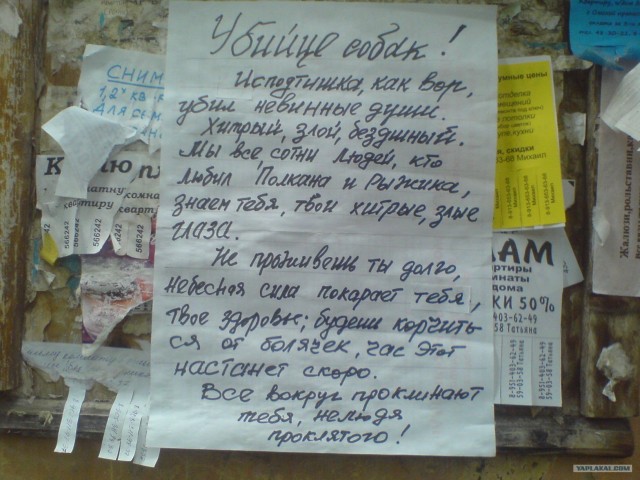 Убийце собак!
Исподтишка, как вор,
убил невинные души.
Хитрый, злой, бездушный.
Мы все сотни людей, кто
любил Полкана и Рыжика,
знаем тебя, твои хитрые, злые
глаза.
Не проживешь ты долго,
небесная сила покарает тебя,
твое здоровье; будешь корчить-
ся от болячек, час этот
настанет скоро.
Все вокруг проклинают
тебя, нелюдя
проклятого!
СНИМ
1,2
кв
566242
566242
566242
умные цены
скидки
Михаил
АМ
артиры
мнаты
дома
КИ 50%
403-62-49
58 Татьяна
8-951-403-62-49
Жалюзи, рольставни
YAPLAKAL.COM